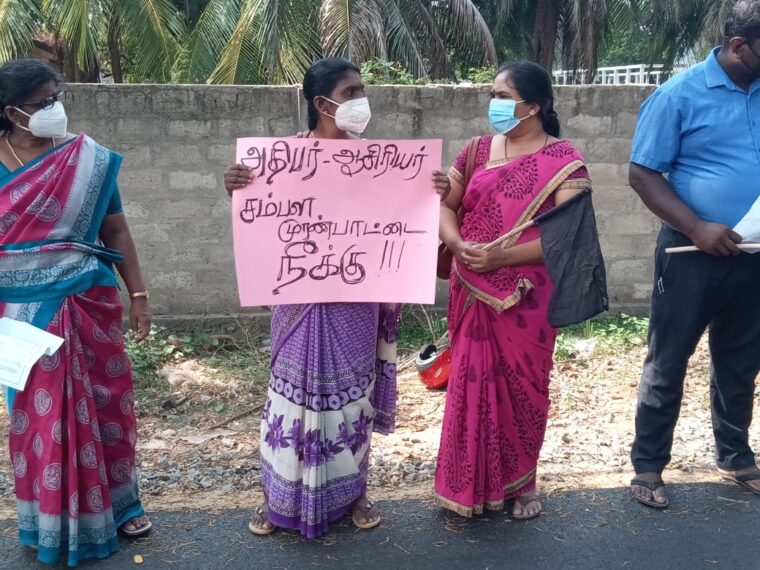 அதிபர் - ஆசிரியர்
சம்பள
முரண்பாட்டை
நீக்கு !!!